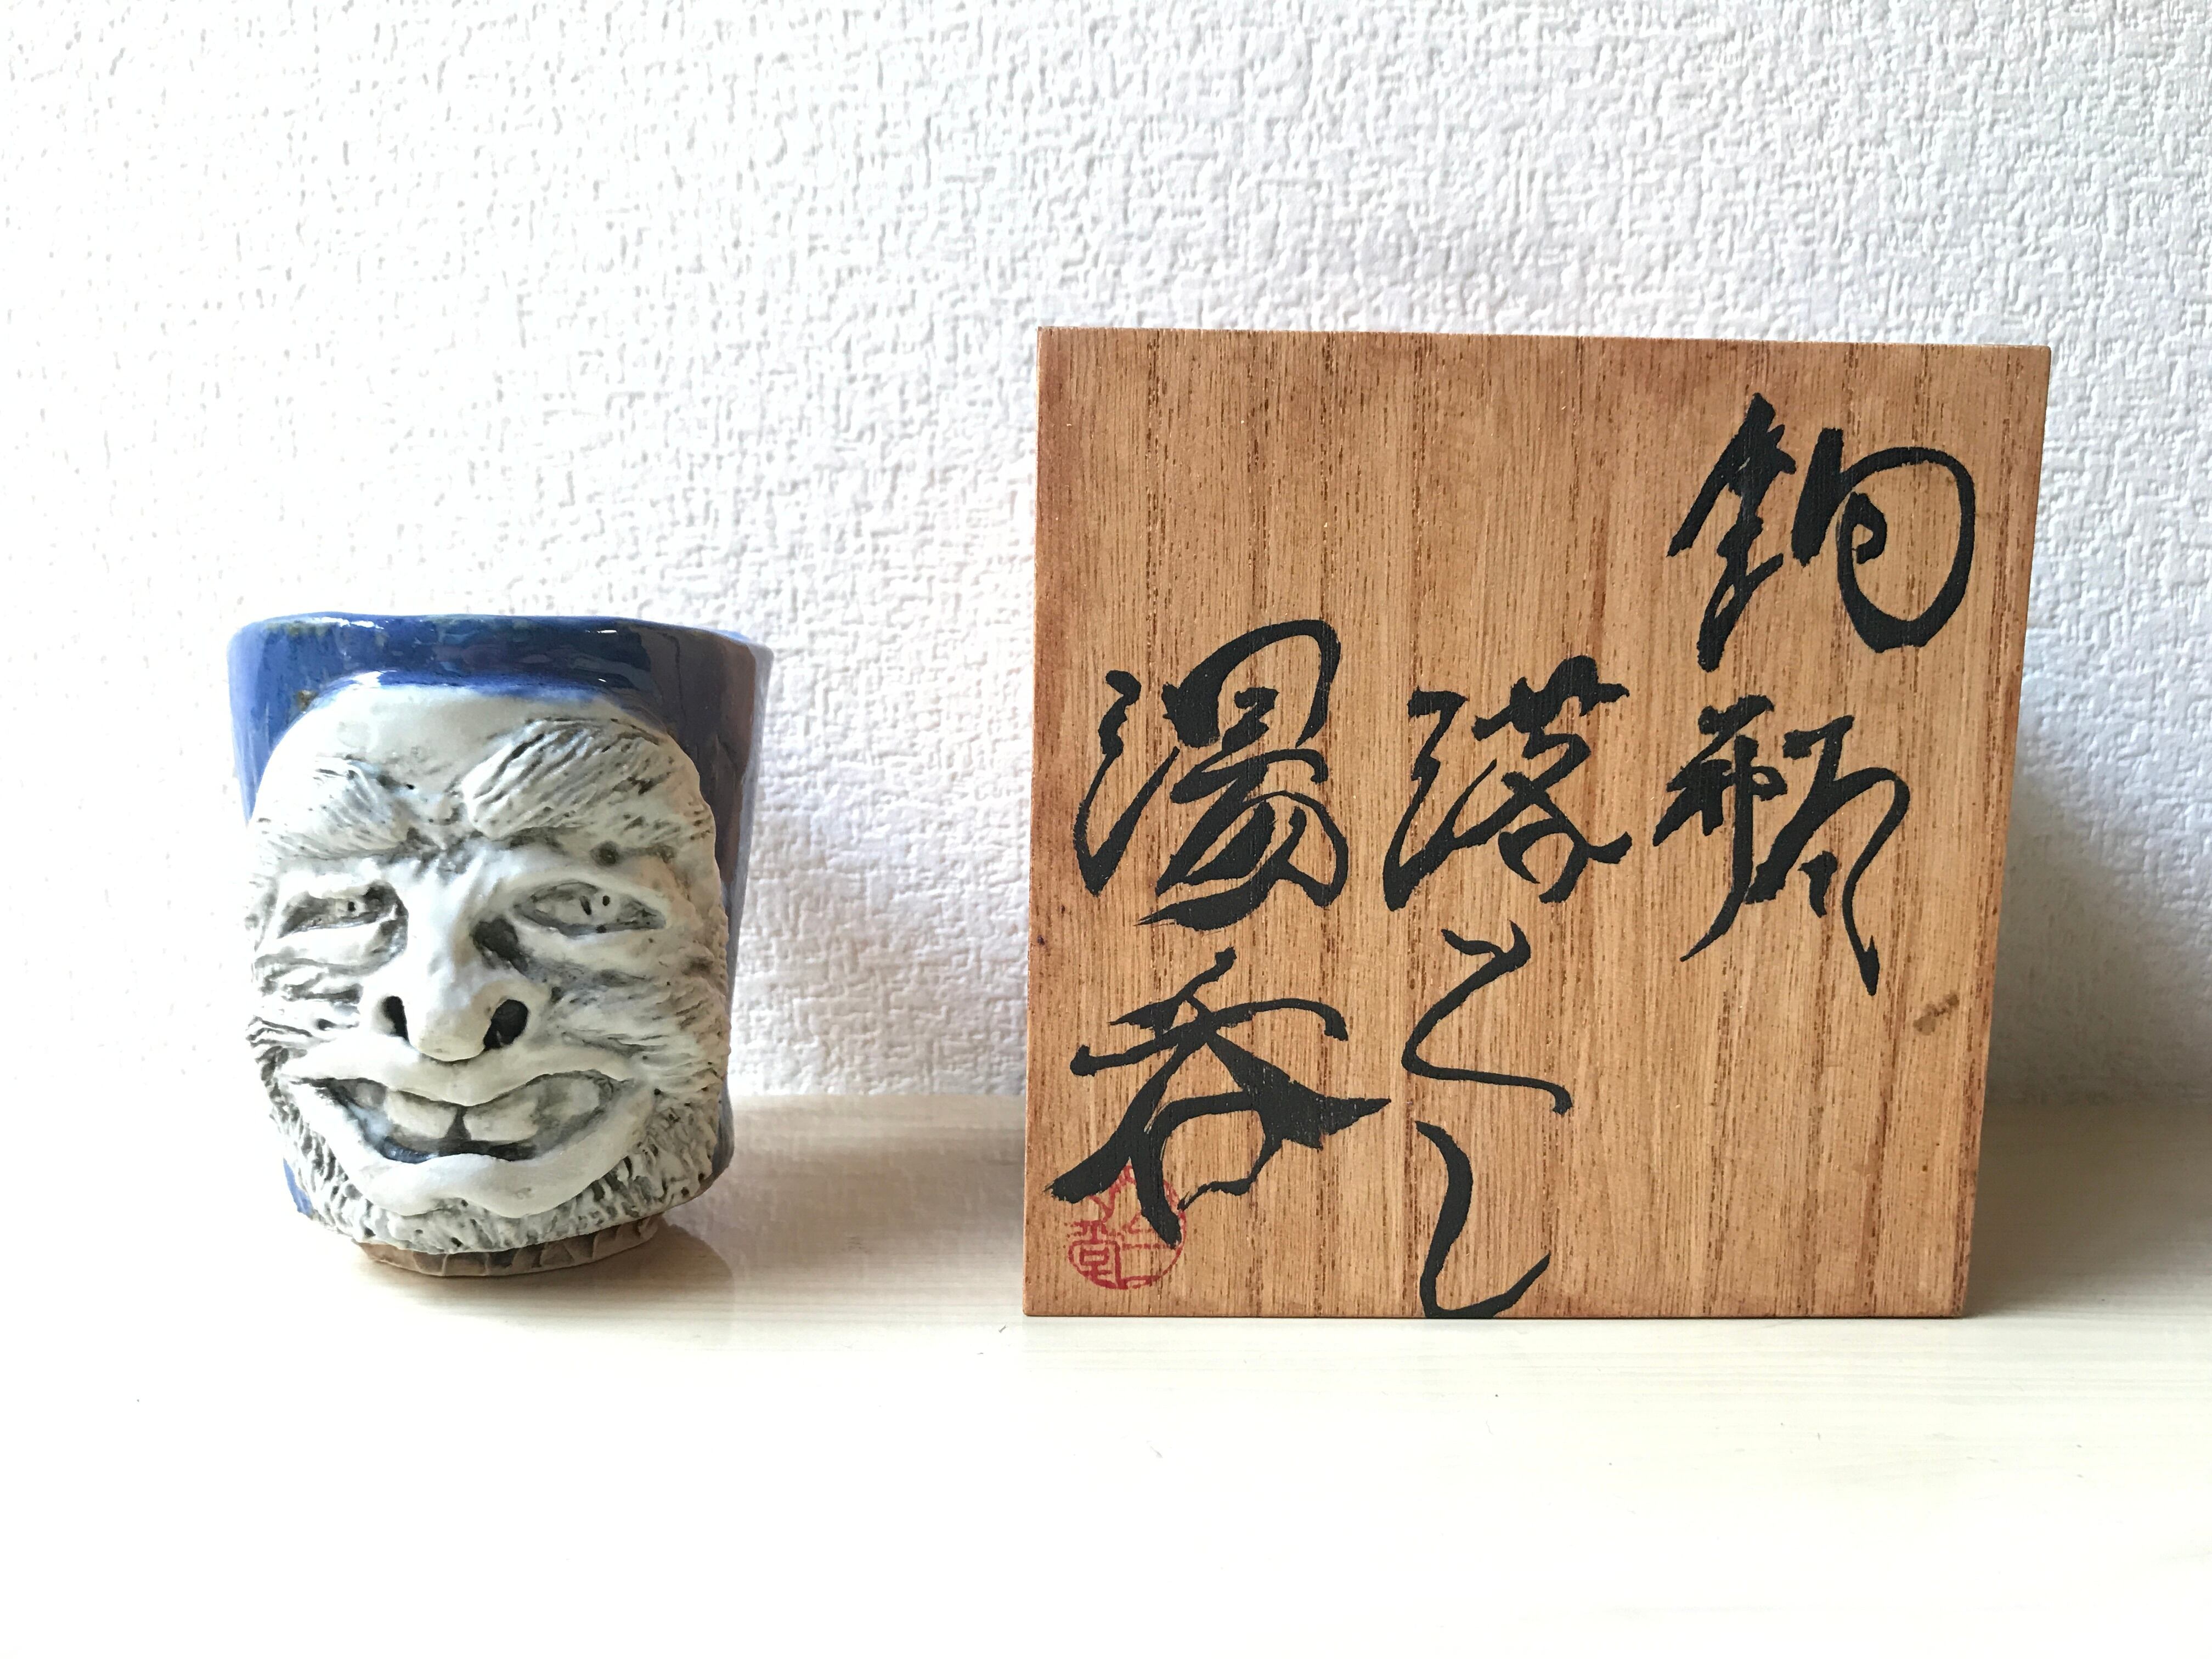 釣瓶
落とし
湯呑